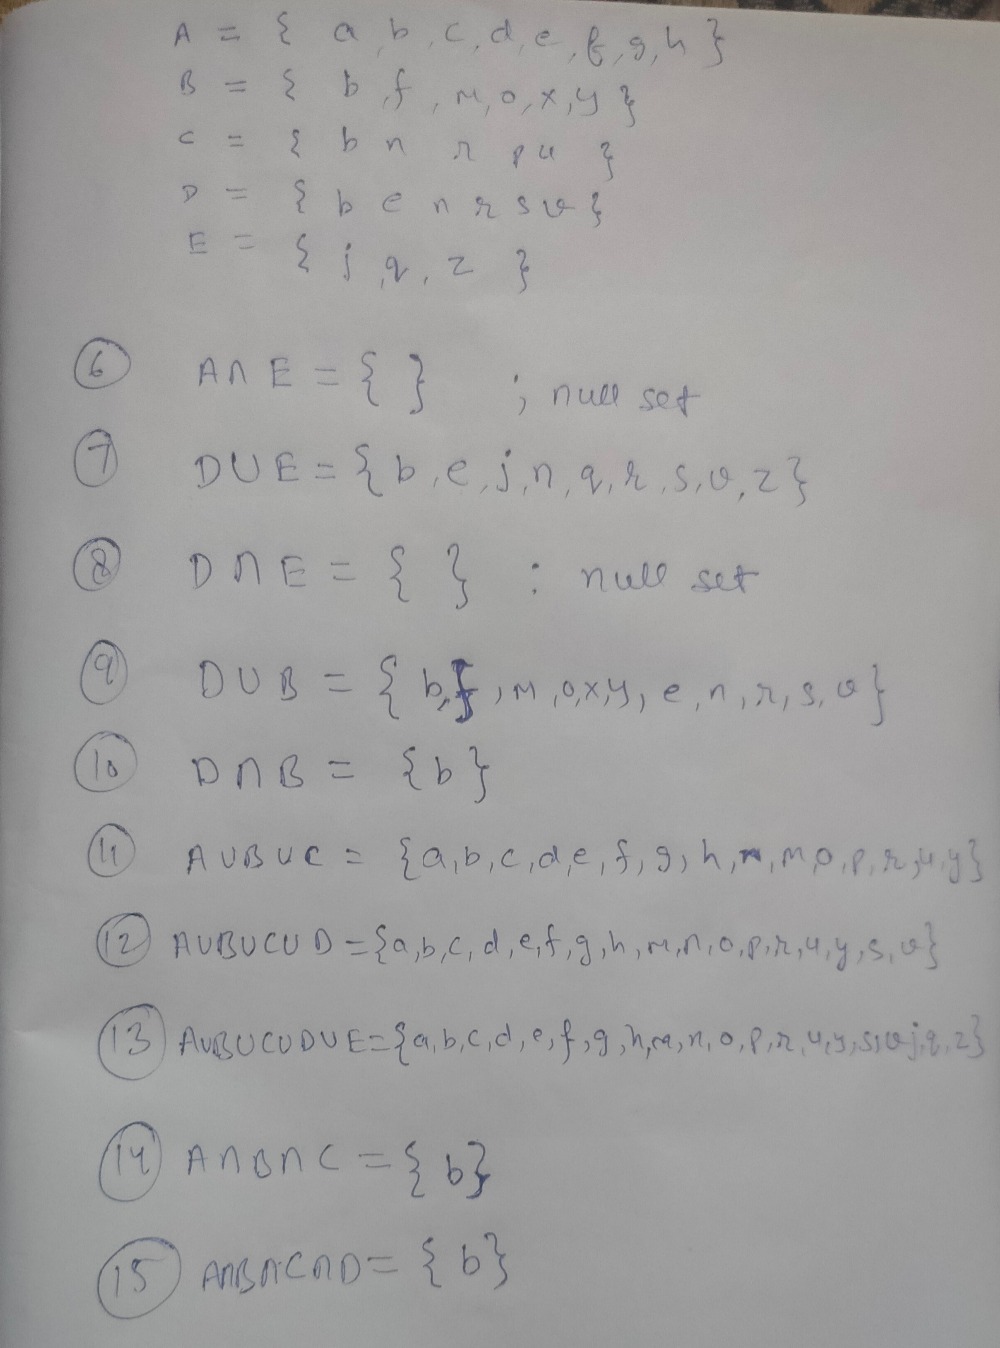 A = { a, b, c, d, e, f, g, h }
B = { b, f, m, o, x, y }
C = { b n r p u }
D = { b e n r s v }
E = { j, q, z }
6 A∩E = { } ; null set
7 D∪E = { b, e, j, n, q, r, s, v, z }
8 D∩E = { } : null set
9 D∪B = { b, f, m, o, x, y, e, n, r, s, v }
10 D∩B = { b }
11 A∪B∪C = { a, b, c, d, e, f, g, h, n, m, o, p, r, u, y }
12 A∪B∪C∪D = { a, b, c, d, e, f, g, h, m, n, o, p, r, u, y, s, v }
13 A∪B∪C∪D∪E = { a, b, c, d, e, f, g, h, m, n, o, p, r, u, y, s, v, j, q, z }
14 A∩B∩C = { b }
15 A∩B∩C∩D = { b }